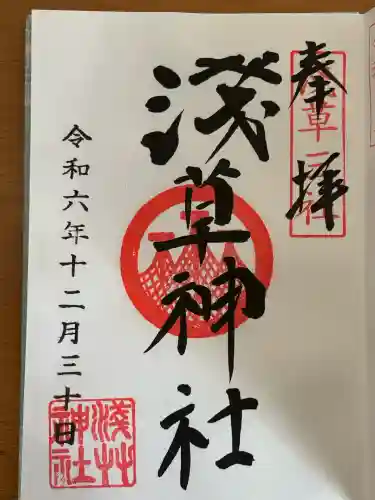 奉拝
浅草神社
令和六年十二月三十日
浅草神社